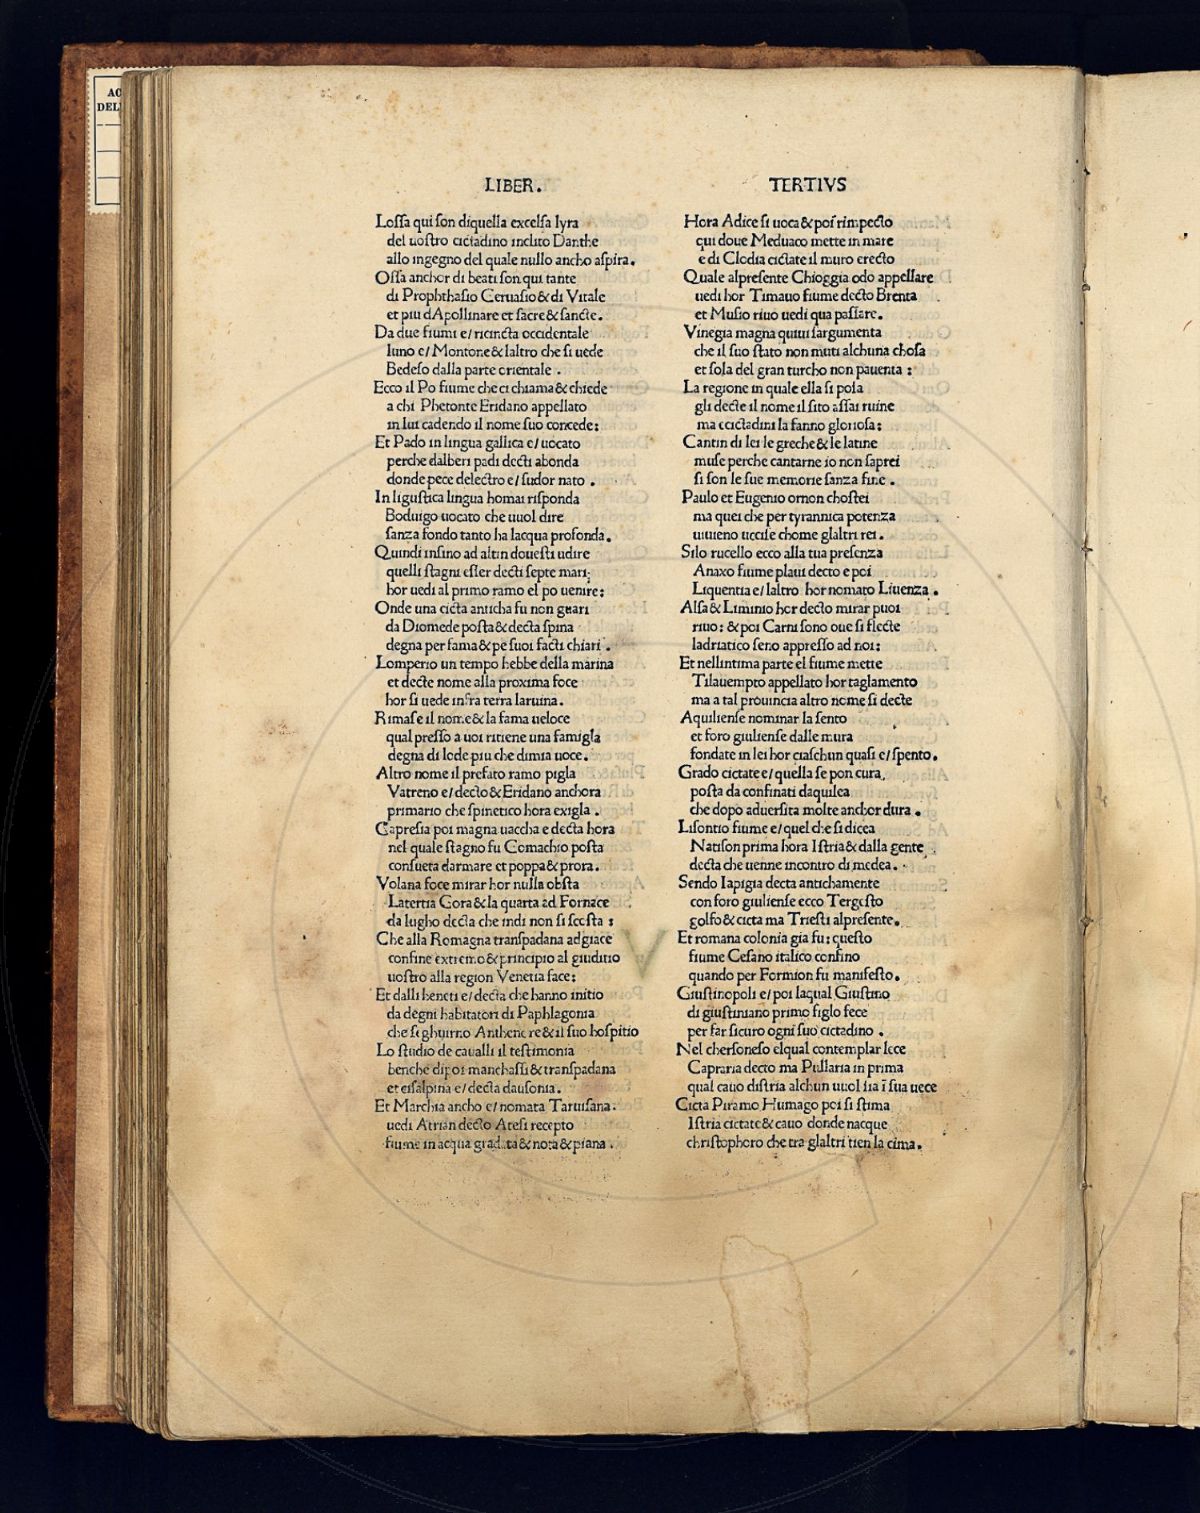 AC
DEL
LIBER.
Lossa qui son diquella excelsa lyra
del uostro cictadino inclito Danthe
allo ingegno del quale nullo ancho aspira.
Ossa anchor di beati son qui tante
di Prophthasio Geruasio & di Vitale
et piu dApollinare et sacre & sancte.
Da due fiumi e/ ricincta occidentale
luno e/ Montone & laltro che si uede
Bedeso dalla parte orientale.
Ecco il Po fiume che ci chiama & chiede
a chi Phetonte Eridano appellato
in lui cadendo il nome suo concede:
Et Pado in lingua gallica e/ uocato
perche dalberi padi decti abonda
donde pece delectro e/ sudor nato.
In ligustica lingua homai risponda
Boduigo uocato che uuol dire
sanza fondo tanto ha lacqua profonda.
Quindi insino ad altin douesti udire
quelli stagni esser decti septe mari;
hor uedi al primo ramo el po uenire:
Onde una cicta anticha fu non guari
da Diomede posta & decta spina
degna per fama & pe suoi facti chiari.
Lomperio un tempo hebbe della marina
et decte nome alla proxima foce
hor si uede infra terra laruina.
Rimase il nome & la fama ueloce
qual presso a uoi ritiene una famigla
degna di lode piu che dimia uoce.
Altro nome il prefato ramo pigla
Vatreno e/ decto & Eridano anchora
primario che spinetico hora exigla.
Capresia poi magna uaccha e decta hora
nel quale stagno fu Comachio posta
consueta darmare et poppa & prora.
Volana foce mirar hor nulla obsta
Latertia Gora & la quarta ad Fornace
da lugho decta che indi non si scosta:
Che alla Romagna transpadana adgiace
confine extremo & principio al giuditio
uostro alla region Venetia face:
Et dalli heneti e/ decta che hanno initio
da degni habitatori di Paphlagonia
che seghuirno Anthenore & il suo hospitio
Lo studio de caualli il testimonia
benche dipoi manchassi & transpadana
et cisalpina e/ decta dausonia.
Et Marchia ancho e/ nomata Taruisana.
uedi Atrian decto Atesi recepto
fiume in acqua gradata & nota & piana.
TERTIVS
Hora Adice si uoca & poi rimpecto
qui doue Meduaco mette in mare
e di Clodia cictate il muro erecto
Quale alpresente Chioggia odo appellare
uedi hor Timauo fiume decto Brenta
et Musio riuo uedi qua passare.
Vinegia magna quiui sargumenta
che il suo stato non muti alchuna chosa
et sola del gran turcho non pauenta:
La regione in quale ella si posa
gli decte il nome il sito assai ruine
ma ecictadini la fanno gloriosa:
Cantin di lei le greche & le latine
muse perche cantarne io non saprei
si son le sue memorie sanza fine.
Paulo et Eugenio ornon chostei
ma quei che per tyrannica potenza
uiuieno uccise chome glaltri rei.
Silo rucello ecco alla tua presenza
Anaxo fiume plaui decto e poi
Liquentia e/ laltro hor nomato Liuenza.
Alsa & Liminio hor decto mirar puoi
riuo: & poi Carni sono oue si flecte
ladriatico seno appresso ad noi:
Et nellintima parte el fiume mette
Tilauempto appellato hor taglamento
ma a tal prouincia altro nome si decte
Aquiliense nominar la sento
et foro giuliense dalle mura
fondate in lei hor ciaschun quasi e/ spento.
Grado cictate e/ quella se pon cura,
posta da confinati daquilea
che dopo aduersita molte anchor dura.
Lisontio fiume e/ quel che si dicea
Natison prima hora Istria & dalla gente
decta che uenne incontro di medea.
Sendo Iapigia decta antichamente
con foro giuliense ecco Tergesto
golfo & cicta ma Triesti alpresente.
Et romana colonia gia fu: questo
fiume Cesano italico confino
quando per Formion fu manifesto.
Giustinopoli e/ poi laqual Giustino
di giustiniano primo figlo fece
per far sicuro ogni suo cictadino.
Nel chersoneso elqual contemplar lece
Capraria decto ma Pullaria in prima
qual cauo distria alchun uuol sia ĩ sua uece
Cicta Piramo Humago poi si stima
Istria cictate & cauo donde nacque
christophoro che tra glaltri tien la cima.